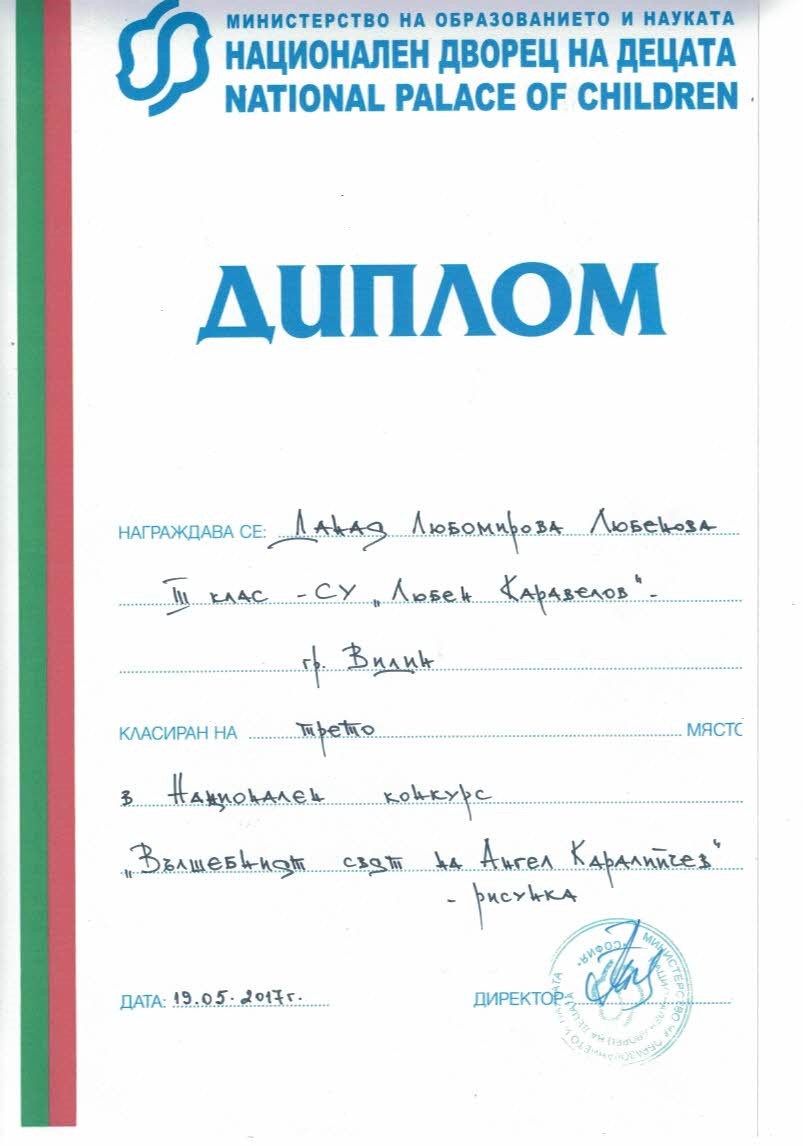 МИНИСТЕРСТВО НА ОБРАЗОВАНИЕТО И НАУКАТА
НАЦИОНАЛЕН ДВОРЕЦ НА ДЕЦАТА
NATIONAL PALACE OF CHILDREN
ДИПЛОМ
НАГРАЖДАВА СЕ: Даная Любомирова Любенова
III клас - СУ „Любен Каравелов" -
гр. Вилин
КЛАСИРАН НА трето МЯСТО
в Национален конкурс
„Вълшебният свят на Ангел Каралийчев"
- рисунка
ДАТА: 19.05.2017г. ДИРЕКТОР: